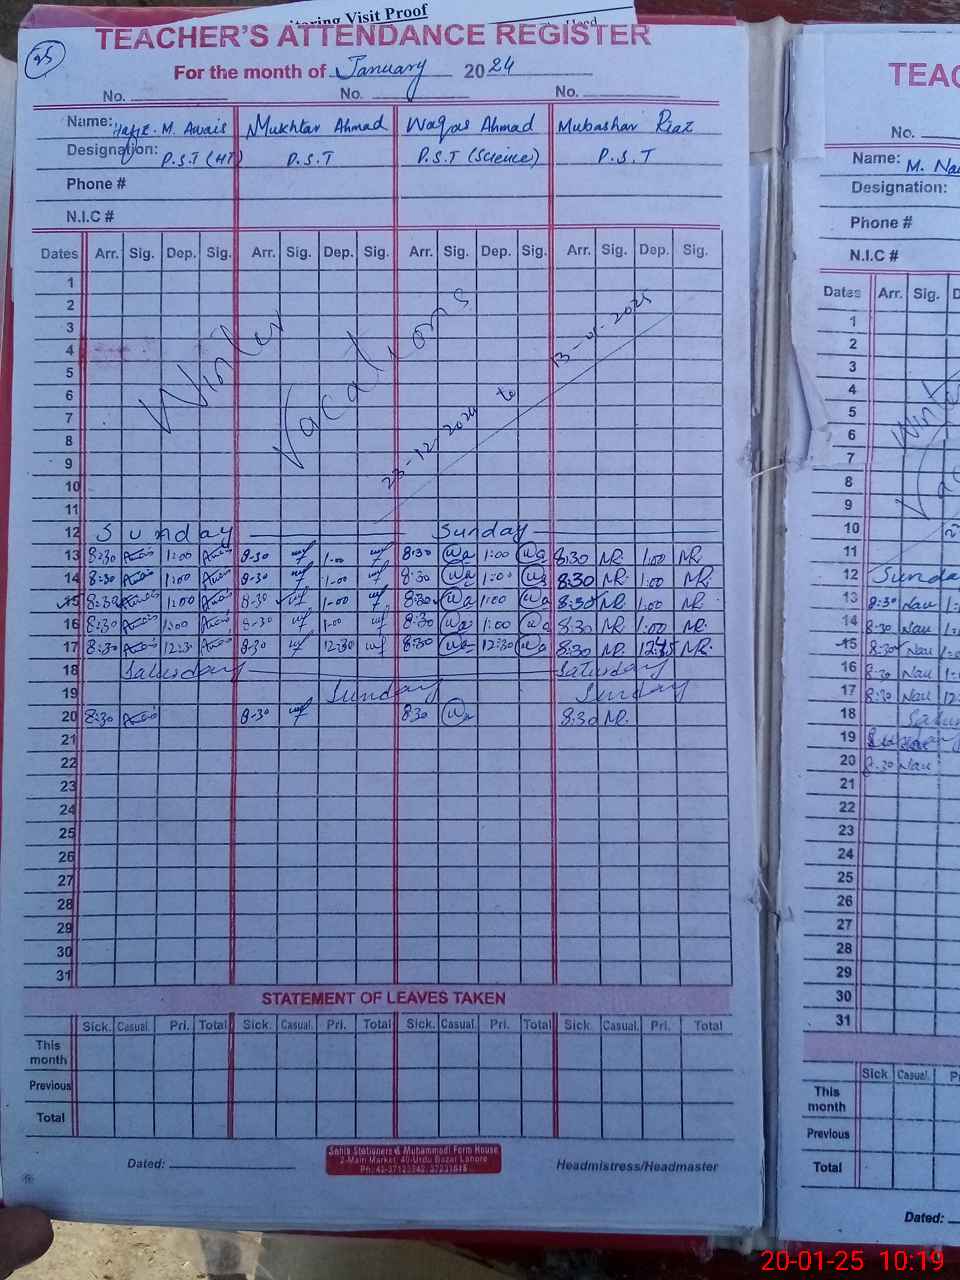 itoring Visit Proof
25
TEACHER'S ATTENDANCE REGISTER
For the month of January 2024
No. No. No.
Name: Hafiz. M. Awais Mukhtar Ahmad Waqas Ahmad Mubashar Riaz
Designation: P.S.T (HT) P.S.T P.S.T (Science) P.S.T
Phone #
N.I.C #
Dates Arr. Sig. Dep. Sig. Arr. Sig. Dep. Sig. Arr. Sig. Dep. Sig. Arr. Sig. Dep. Sig.
1
2
3
4
5
6
7
8
9
10
11
Winter Vacations
23-12-2024 to 13-01-2025
12 Sunday Sunday
13 8:30 Awais 1:00 Awais 8-30 1-00 8:30 Wa 1:00 Wa 8:30 MR. 1:00 MR.
14 8:30 Awais 1:00 Awais 8-30 1-00 8:30 Wa 1:00 Wa 8:30 MR. 1:00 MR.
15 8:30 Awais 1:00 Awais 8-30 1-00 8:30 Wa 1:00 Wa 8:30 MR. 1:00 MR.
16 8:30 Awais 1:00 Awais 8-30 1-00 8:30 Wa 1:00 Wa 8:30 MR. 1:00 MR.
17 8:30 Awais 12:30 Awais 8-30 12:30 8:30 Wa 12:30 Wa 8:30 MR. MR.
18 Saturday Saturday
19 Sunday Sunday
20 8:30 Awais 8-30 8:30 Wa 8:30 MR.
21
22
23
24
25
26
27
28
29
30
31
STATEMENT OF LEAVES TAKEN
Sick. Casual. Pri. Total Sick. Casual. Pri. Total Sick. Casual. Pri. Total Sick. Casual. Pri. Total
This month
Previous
Total
Dated: Headmistress/Headmaster
Sahib Stationers & Muhammadi Form House
2-Main Market, 40-Urdu Bazar Lahore
TEAC
No.
Name: M. Nau
Designation:
Phone #
N.I.C #
Dates Arr. Sig. D
1
2
3
4
5
6
7
8
9
10
11
12 Sunday
13 8:30 Nau
14 8:30 Nau
15 8:30 Nau
16 8:30 Nau
17 8:30 Nau
18
19
20 8:30 Nau
21
22
23
24
25
26
27
28
29
30
31
Sick. Casual. P
This month
Previous
Total
Dated:
20-01-25 10:19